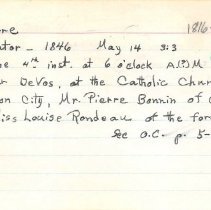 1846
tor - 1846 May 14 3:3
4th inst. at 6 o'clock A.M
DeVos, at the Catholic Chur
on City, Mr. Pierre Bonnin of
iss Louise Rondeau of the for
See O.C- p. 5-